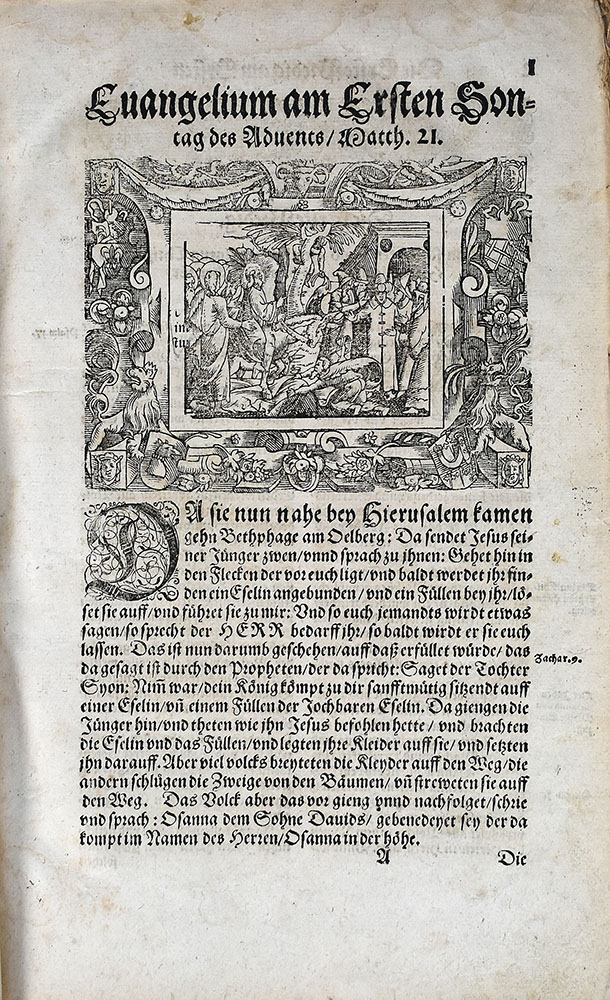 1
Euangelium am Ersten Son-
tag des Aduents/Matth. 21.
DA sie nun nahe bey Hierusalem kamen
gehn Bethphage am Oelberg: Da sendet Jesus sei-
ner Jünger zwen/vnnd sprach zu jhnen: Gehet hin in
den Flecken der vor euch ligt/vnd baldt werdet jhr fin-
den ein Eselin angebunden/vnd ein Füllen bey jhr/lö-
set sie auff/vnd führet sie zu mir: Vnd so euch jemandts wirdt etwas
sagen/so sprecht der HERR bedarff jhr/so baldt wirdt er sie euch
lassen. Das ist nun darumb geschehen/auff daß erfüllet würde/das
da gesagt ist durch den Propheten/der da spricht: Saget der Tochter
Zachar. 9.
Syon: Nim̃ war/dein König kömpt zu dir sanfftmütig sitzendt auff
einer Eselin/vñ einem Füllen der Jochbaren Eselin. Da giengen die
Jünger hin/vnd theten wie jhn Jesus befohlen hette/vnd brachten
die Eselin vnd das Füllen/vnd legten jhre Kleider auff sie/vnd setzten
jhn darauff. Aber viel volcks breyteten die Kleyder auff den Weg/die
andern schlügen die Zweige von den Bäumen/vñ streweten sie auff
den Weg. Das Volck aber das vor gieng vnnd nachfolget/schrie
vnd sprach: Osanna dem Sohne Dauids/gebenedeyet sey der da
kompt im Namen des Herren/Osanna in der höhe.
A Die